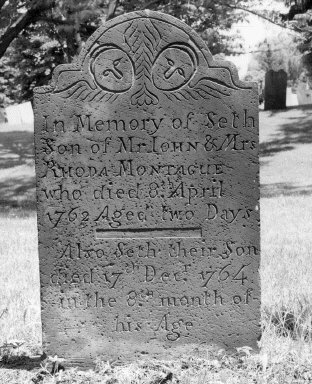 In Memory of Seth
Son of Mr. JOHN & Mrs
RHODA MONTAGUE
who died 8th April
1762 Aged two Days
Also Seth their Son
died 17th Decr 1764
in the 8th month of
his Age